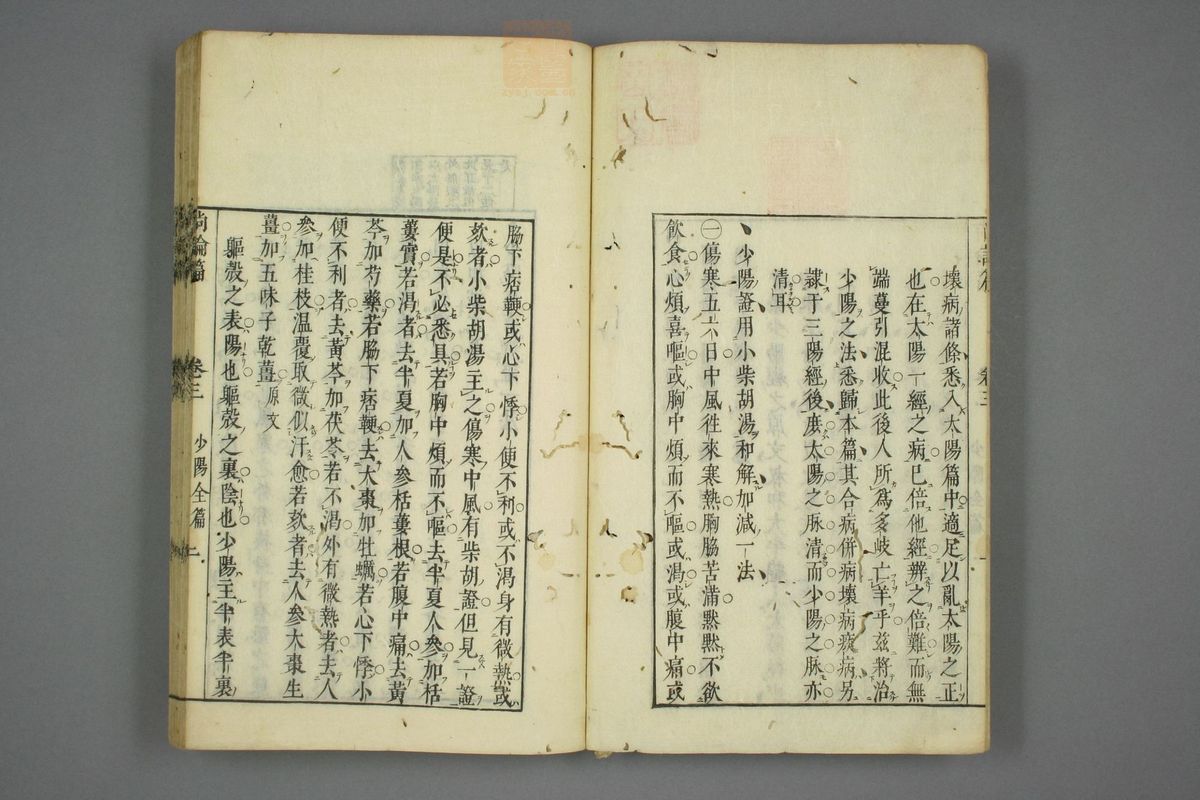 壞病諸條悉入太陽篇中適足以亂太陽之正
也在太陽一經之病已倍他經辨之倍難而無
端蔓引混收此後人所為多岐亡羊乎茲將治
少陽之法悉歸本篇其合病併病壞病痰病另
隸于三陽經後庻太陽之脉清而少陽之脉亦
清耳
少陽證用小柴胡湯和解加減一法
㊀傷寒五六日中風徃來寒熱胸脇苦滿黙黙不欲
飲食心煩喜嘔或胸中煩而不嘔或渴或腹中痛或
脇下痞鞕或心下悸小便不利或不渴身有微熱或
欬者小柴胡湯主之傷寒中風有柴胡證但見一證
便是不必悉具若胸中煩而不嘔去半夏人參加栝
蔞實若渴者去半夏加人參栝蔞根若腹中痛去黃
芩加芍藥若脇下痞鞕去大棗加牡蠣若心下悸小
便不利者去黃芩加茯苓若不渴外有微熱者去人
參加桂枝温覆取微似汗愈若欬者去人參大棗生
薑加五味子乾薑原文
軀殼之表陽也軀殼之裏陰也少陽主半表半裏
尚論篇 卷三 少陽全篇 二